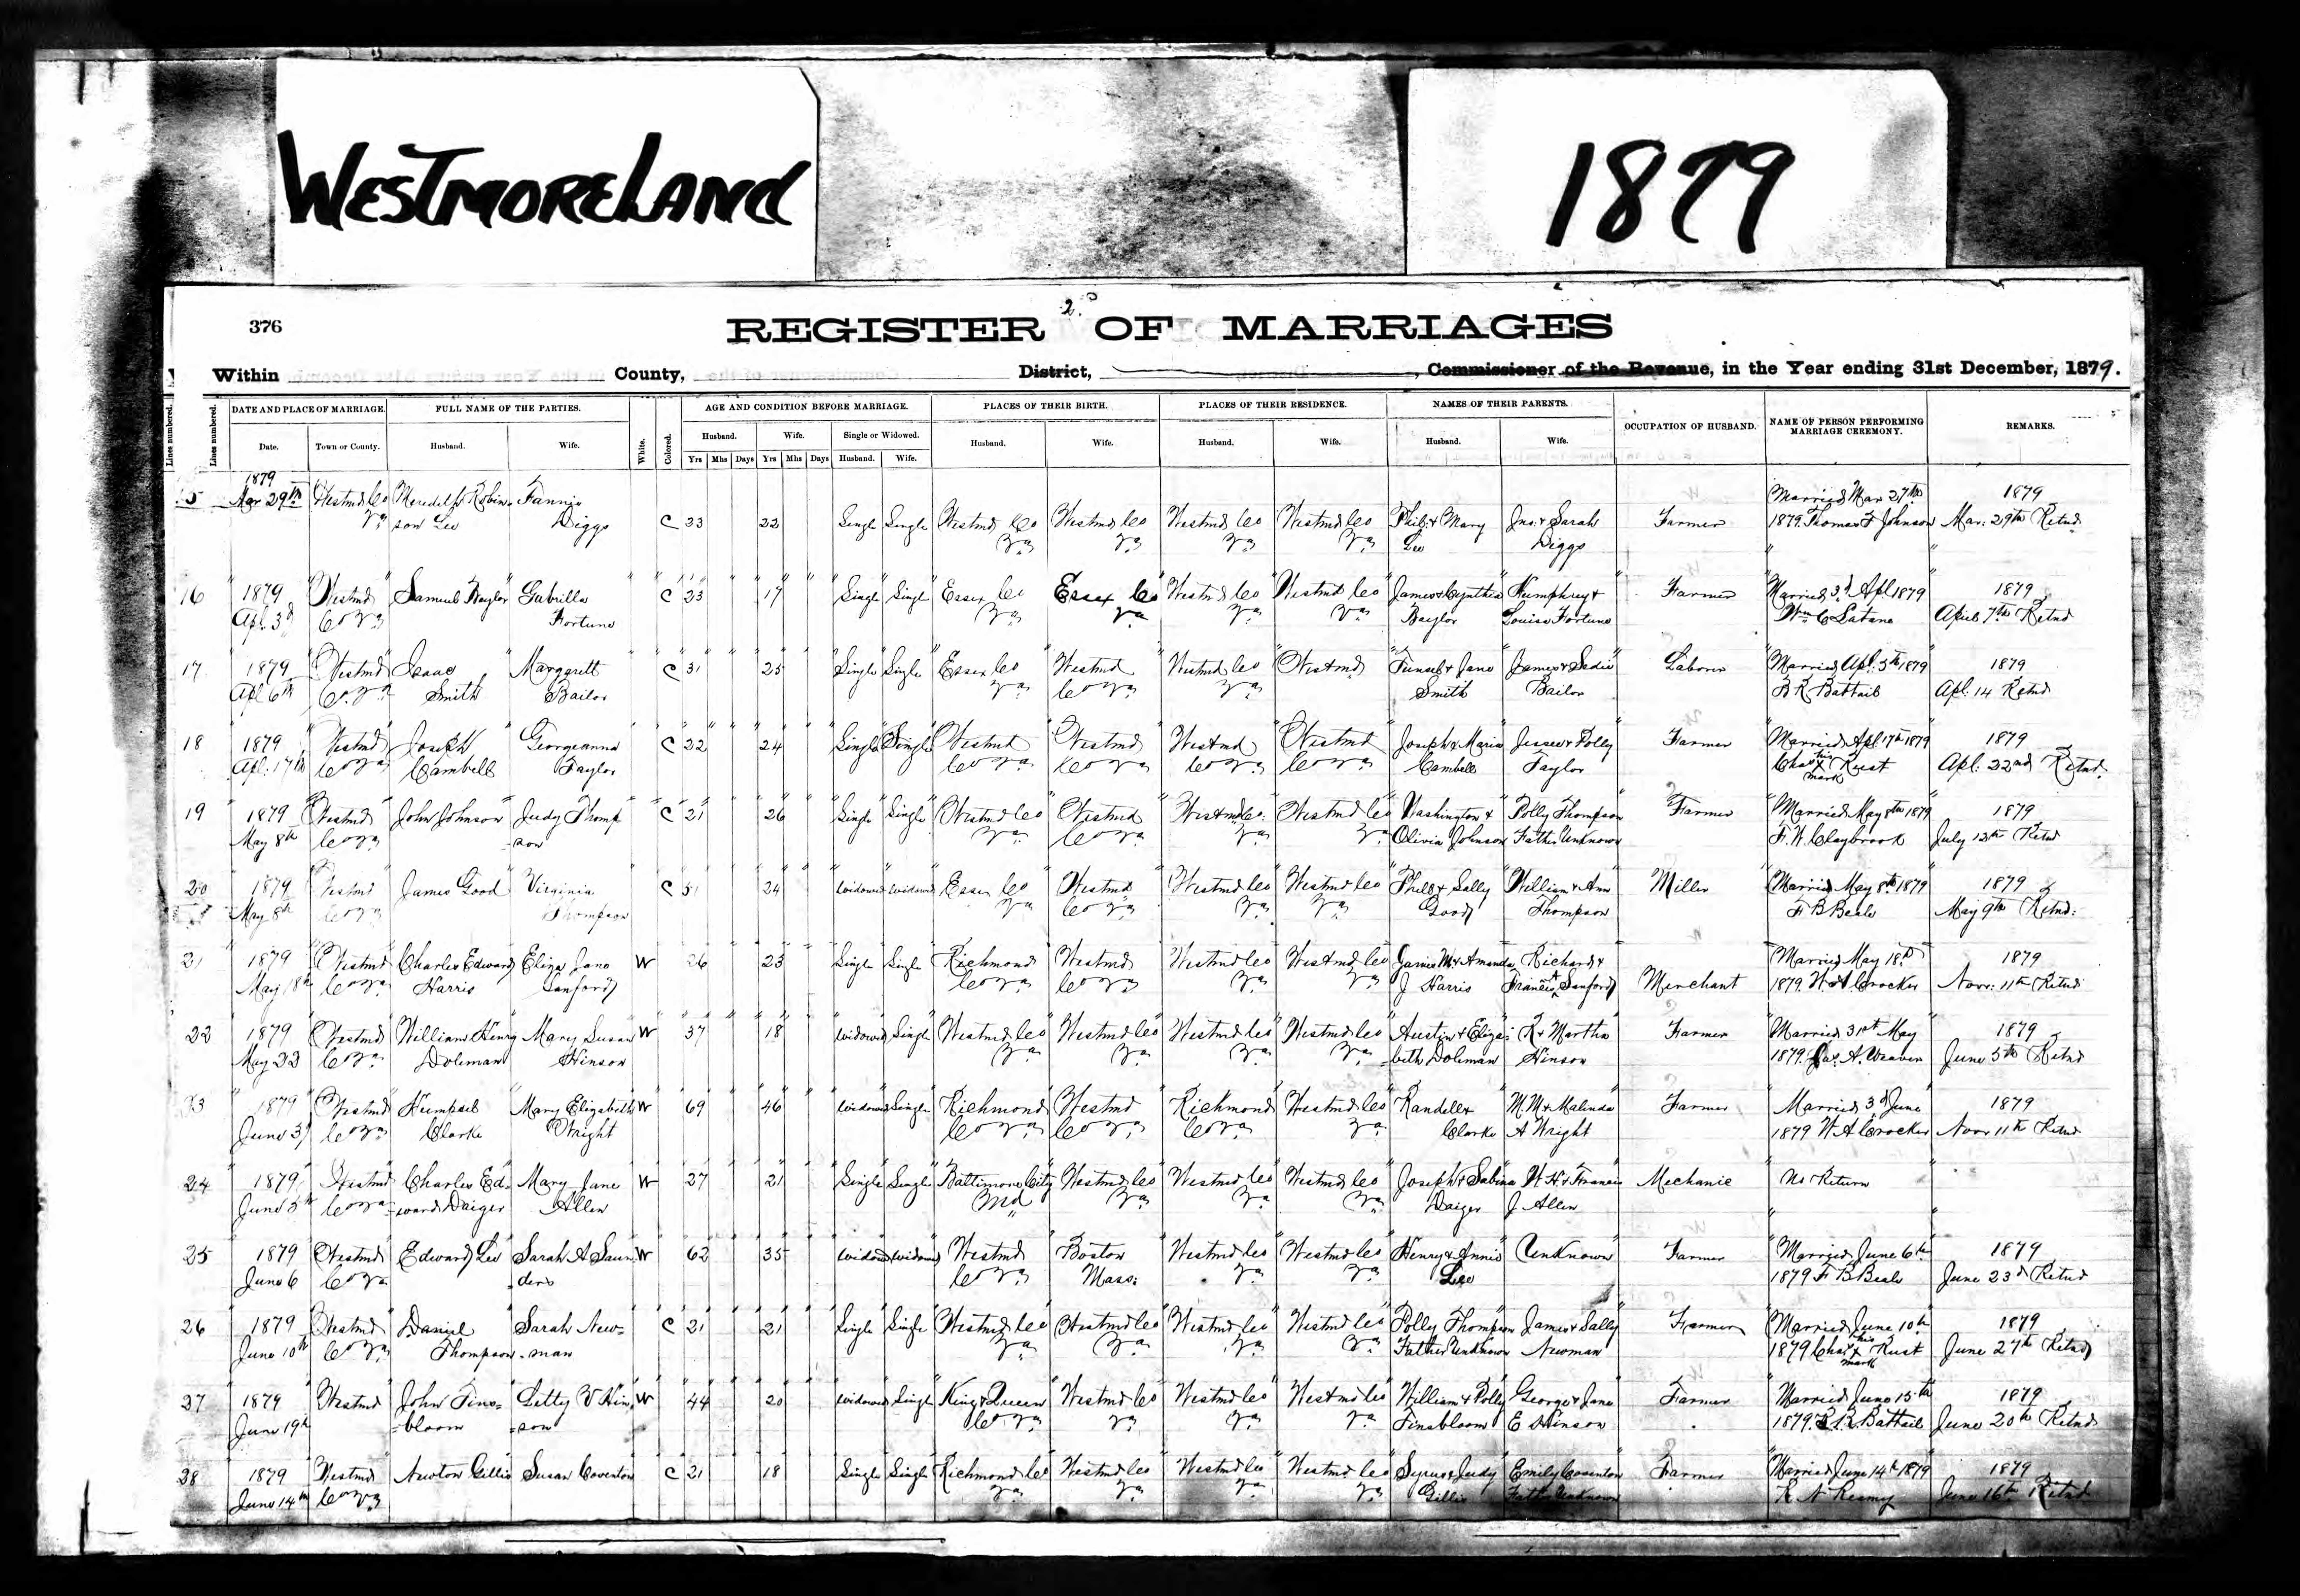 WESTMORELAND
1879
376
2.
REGISTER OF MARRIAGES
Within County, District, Commissioner of the Revenue, in the Year ending 31st December, 1879.
Lines numbered. Lines numbered. DATE AND PLACE OF MARRIAGE. FULL NAME OF THE PARTIES. White. Colored. AGE AND CONDITION BEFORE MARRIAGE. PLACES OF THEIR BIRTH. PLACES OF THEIR RESIDENCE. NAMES OF THEIR PARENTS. OCCUPATION OF HUSBAND. NAME OF PERSON PERFORMING MARRIAGE CEREMONY. REMARKS.
Husband. Wife. Single or Widowed.
Date. Town or County. Husband. Wife. Husband. Wife. Husband. Wife. Husband. Wife.
Yrs Mhs Days Yrs Mhs Days Husband. Wife.
1879
Mar 29th Westmd Co Meredith Robin- Fannie Married Mar 27th 1879
Va son Lee Diggs C 23 22 Single Single Westmd Co Westmd Co Westmd Co Westmd Co Phil & Mary Jno & Sarah Farmer 1879. Thomas F Johnson Mar: 29th Retnd
Va Va Va Va Lee Diggs
16 1879 Westmd Samuel Baylor Gabrilla C 23 17 Single Single Essex Co Essex Co Westmd Co Westmd Co James & Cynthia Humphrey & Farmer Married 3d Apl 1879 1879
Apl. 3d Co Va Fortune Va Va Va Va Baylor Louisa Fortune Wm C Latane April 7th Retnd
17 1879 Westmd Isaac Margarett C 31 25 Single Single Essex Co Westmd Westmd Co Westmd & Jane James & Sadie Laborer Married Apl. 5th 1879 1879
Apl 6th Co. Va Smith Bailor Va Co Va Va Smith Bailor B R Battail Apl. 14 Retnd
18 1879 Westmd Joseph Georgeanna C 22 24 Single Single Westmd Westmd Westmd Westmd Joseph & Maria Jessee & Polly Farmer Married Apl 17th 1879 1879
Apl. 17th Co Va Cambell Taylor Co Va Co Va Co Va Co Va Cambell Taylor Chas his x mark Rust Apl. 22nd Retnd.
19 1879 Westmd John Johnson Judy Thomp C 21 26 Single Single Westmd Co Westmd Westmd Co. Westmd Co Washington & Polly Thompson Farmer Married May 8th 1879 1879
May 8th Co Va -son Va Co Va Va Va Olivia Johnson Father Unknown F. W. Claybrook July 12th Retnd
20 1879 Westmd James Good Virginia C 51 24 Widowed Widowed Essex Co Westmd Westmd Co Westmd Co Phill & Sally William & Ann Miller Married May 8th 1879 1879
May 8th Co Va Thompson Va Co Va Va Va Good Thompson F B Beale May 9th Retnd.
21 1879 Westmd Charles Edward Eliza Jane W 26 23 Single Single Richmond Westmd Westmd Co Westmd Co James M. & Amanda Richard & Merchant Married May 18th 1879
May 18th Co Va Harris Sanford Co Va Co Va Va Va J Harris Francis A Sanford 1879. W A Crocker Novr: 11th Retnd
22 1879 Westmd William Henry Mary Susan W 37 18 Widowed Single Westmd Co Westmd Co Westmd Co Westmd Co Austin & Eliza- R & Martha Farmer Married 31st May 1879
May 23 Co Va Doleman Hinson Va Va Va Va -beth Doleman Hinson 1879. Jas. A. Weaver June 5th Retnd
23 1879 Westmd Clarke Mary Elizabeth W 69 46 Widowed Single Richmond Westmd Richmond Westmd Co Randell & M. M & Malinda Farmer Married 3d June 1879
June 3d Co Va Wright Co Va Co Va Co Va Va Clarke A Wright 1879 W A Crocker Novr 11th Retnd
24 1879 Westmd Charles Ed- Mary Jane W 27 21 Single Single Baltimore City Westmd Co Westmd Co Westmd Co Joseph & Sabina W. H. & Francis Mechanic No Return
June 5th Co Va -ward Daiger Allen Md Va Va Va Daiger J Allen
25 1879 Westmd Edward Lee Sarah A Saun W 62 35 Widowed Widowed Westmd Boston Westmd Co Westmd Co Henry & Annie Unknown Farmer Married June 6th 1879
June 6 Co Va -ders Co Va Mass: Va Va Lee 1879 F B Beale June 23d Retnd
26 1879 Westmd Daniel Sarah New- C 21 21 Single Single Westmd Co Westmd Co Westmd Co Westmd Co Polly Thompson James & Sally Farmer Married June 10th 1879
June 10th Co Va Thompson -man Va Va Va Va Father Unknown Newman 1879 Chas his x mark Rust June 27th Retnd
27 1879 Westmd John Fins- Letty V Hin W 44 20 Widowed Single King & Queen Westmd Co Westmd Co Westmd Co William & Polly George & Jane Farmer Married June 15th 1879
June 19th -bloom -son Co Va Va Va Va Finsbloom E Hinson 1879. B R Battail June 20th Retnd
28 1879 Westmd Newton Gillis Susan Coventon C 21 18 Single Single Richmond Co Westmd Co Westmd Co Westmd Co Syrus & Judy Emily Coventon Farmer Married June 14th 1879 1879
June 14th Co Va Va Va Va Va Gillis Father Unknown R N Reamy June 16th Retnd